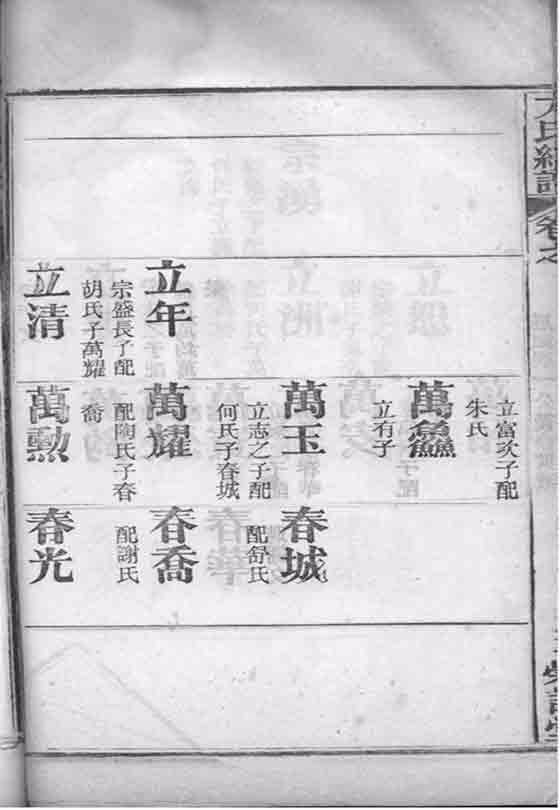 卷之
立年
宗盛長子配
胡氏子萬耀
立清
立富次子配
朱氏
萬鱻
立有子
萬玉
立志之子配
何氏子春城
萬耀
配陶氏子春
喬
萬勲
春城
配舒氏
春喬
配謝氏
春光